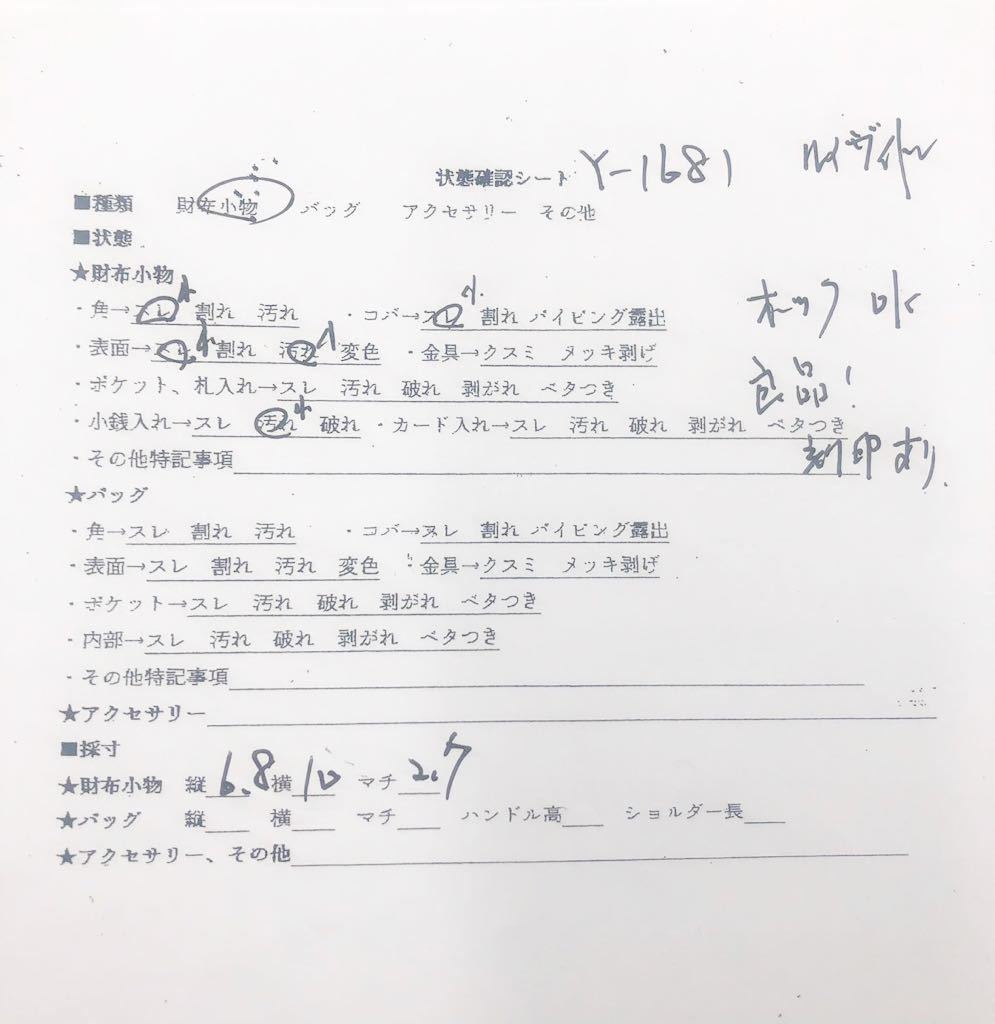 状態確認シート Y-1681 ルイヴィトン
■種類 財布小物 バッグ アクセサリー その他
■状態
★財布小物
・角→スレ 小 割れ 汚れ ・コバ→スレ 小 割れ パイピング露出
ホック OK
・表面→スレ 小 割れ 汚れ 小 変色 ・金具→クスミ メッキ剥げ
良品!
・ポケット、札入れ→スレ 汚れ 破れ 剥がれ ベタつき
・小銭入れ→スレ 汚れ 小 破れ ・カード入れ→スレ 汚れ 破れ 剥がれ ベタつき
・その他特記事項 刻印あり.
★バッグ
・角→スレ 割れ 汚れ ・コバ→スレ 割れ パイピング露出
・表面→スレ 割れ 汚れ 変色 ・金具→クスミ メッキ剥げ
・ポケット→スレ 汚れ 破れ 剥がれ ベタつき
・内部→スレ 汚れ 破れ 剥がれ ベタつき
・その他特記事項
★アクセサリー
■採寸
★財布小物 縦 6.8 横 10 マチ 2.7
★バッグ 縦 横 マチ ハンドル高 ショルダー長
★アクセサリー、その他